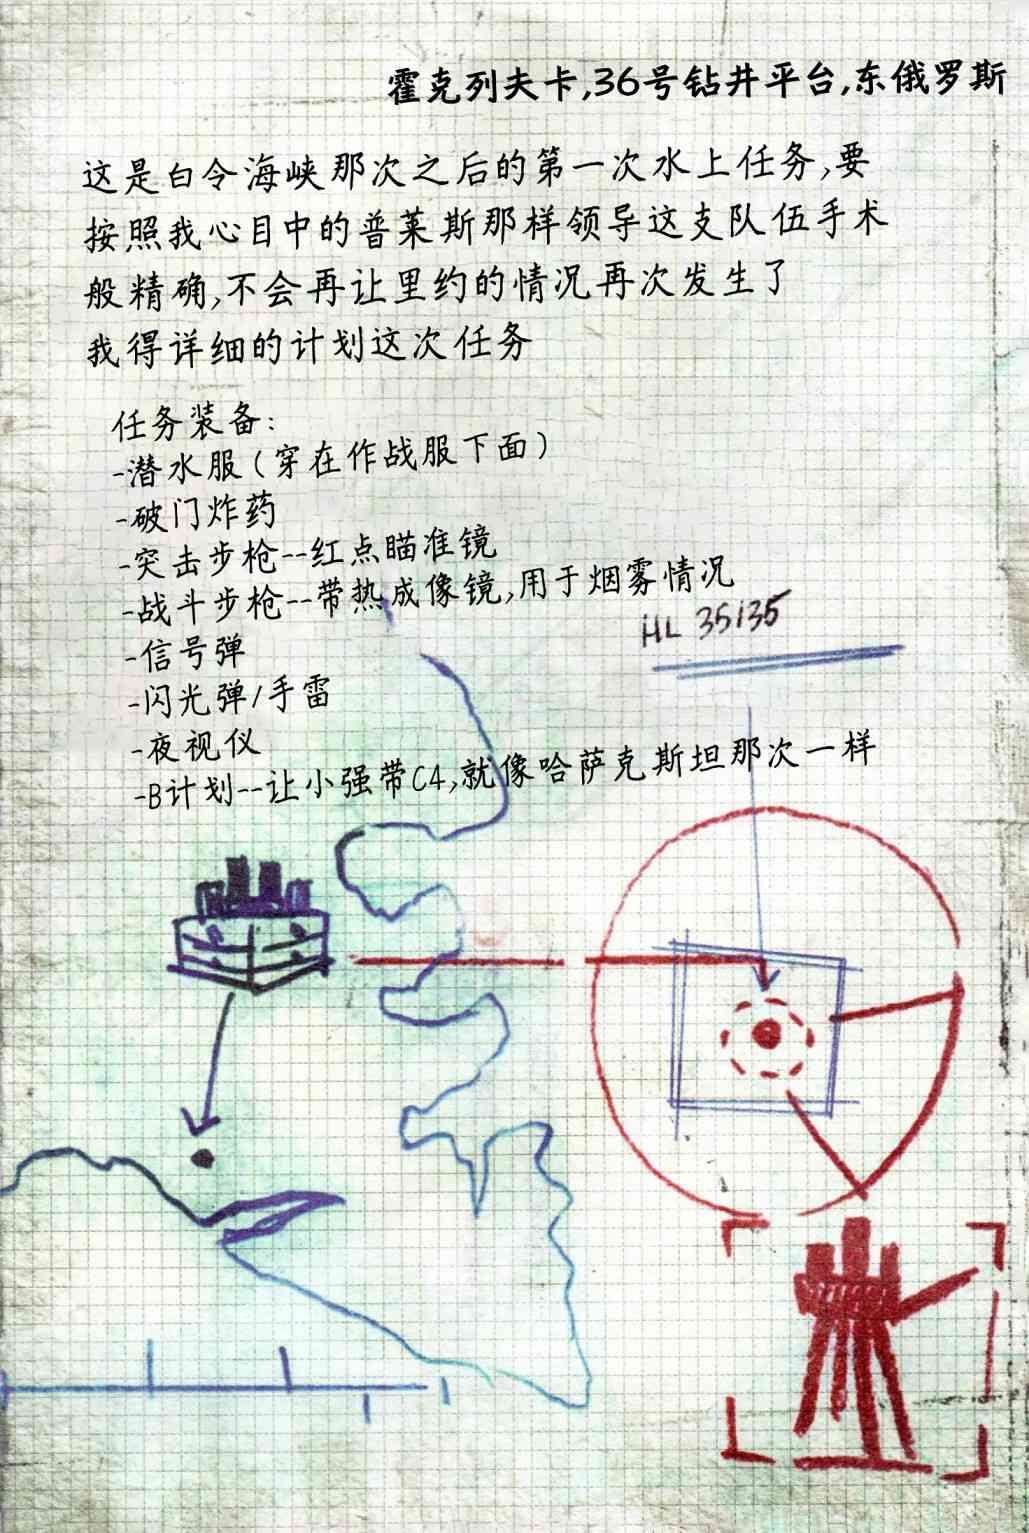 霍克列夫卡,36号钻井平台,东俄罗斯
这是白令海峡那次之后的第一次水上任务,要
按照我心目中的普莱斯那样领导这支队伍手术
般精确,不会再让里约的情况再次发生了
我得详细的计划这次任务
任务装备:
-潜水服(穿在作战服下面)
-破门炸药
-突击步枪--红点瞄准镜
-战斗步枪--带热成像镜,用于烟雾情况
HL 35135
-信号弹
-闪光弹/手雷
-夜视仪
-B计划--让小强带C4,就像哈萨克斯坦那次一样